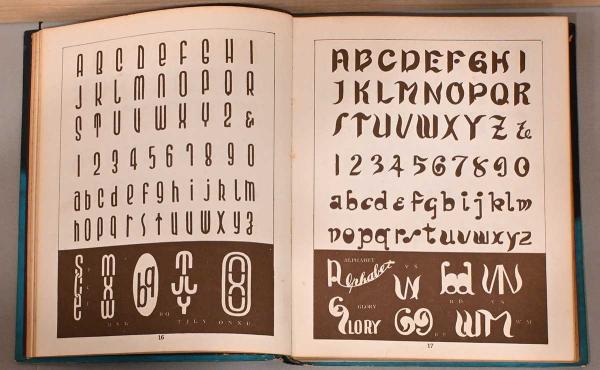 A B C D E F G H I
J K L M N O P Q R
S T U V W X Y Z &
1 2 3 4 5 6 7 8 9 0
a b c d e f g h i j k l m
n o p q r s t u v w x y z
16
A B C D E F G H I
J K L M N O P Q R
S T U V W X Y Z &
1 2 3 4 5 6 7 8 9 0
a b c d e f g h i j k l m
n o p q r s t u v w x y z
ALPHABET
Alphabet
GLORY
GLORY
17